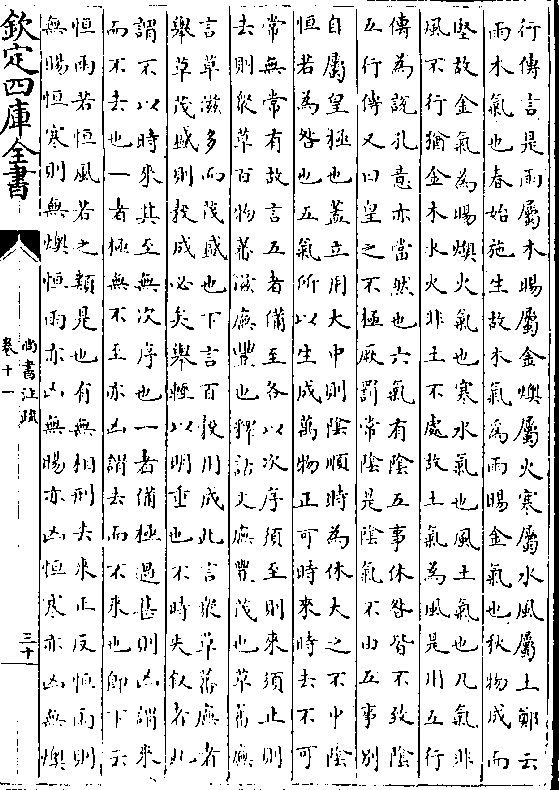 行傳言是雨屬木暘屬金燠屬火寒屬水風屬土鄭云
雨木氣也春始施生故木氣為雨暘金氣也秋物成而
堅故金氣為暘燠火氣也寒水氣也風土氣也凡氣非
風不行猶金木水火非土不處故土氣為風是用五行
傳為說孔意亦當然也六氣有陰五事休咎皆不致陰
五行傳又曰皇之不極厥罰常陰是陰氣不由五事別
自屬皇極也蓋立用大中則陰順時為休大之不中陰
恒若為咎也五氣所以生成萬物正可時來時去不可
常無常有故言五者備至各以次序須至則來須止則
去則衆草百物蕃滋廡豐也釋詁文廡豐茂也草蕃廡
言草滋多而茂盛也下言百穀用成此言衆草蕃廡者
舉草茂盛則穀成必矣舉輕以明重也不時失叙者此
謂不以時來其至無次序也一者備極過甚則凶謂來
而不去也一者極無不至亦凶謂去而不來也即下云
恒雨若恒風若之類是也有無相刑去來正反恒雨則
無暘恒寒則無燠恒雨亦凶無暘亦凶恒寒亦凶無燠
欽定四庫全書
尚書注疏
卷十一
三十